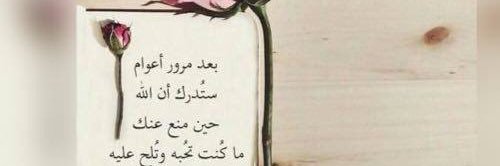 بعد مرور أعوام
ستُدرك أن الله
حين منع عنك
ما كُنت تحُبه وتُلح عليه